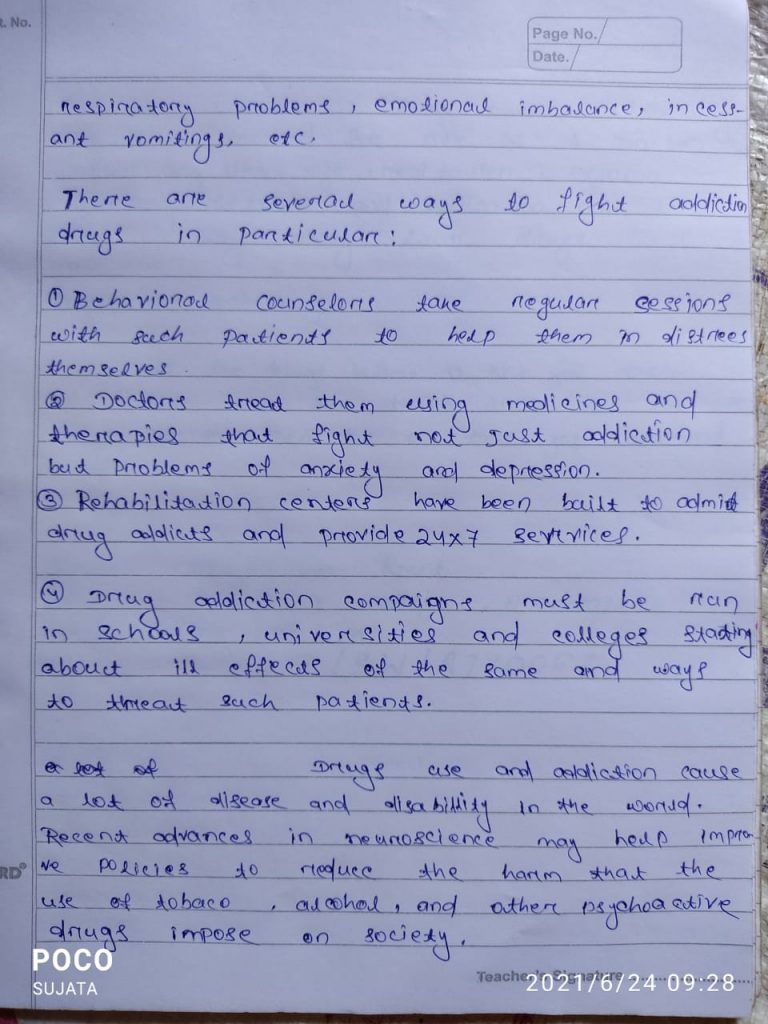 t. No.
Page No.
Date.
respiratory problems, emotional imbalance, incess-
ant vomitings, etc.
There are several ways to fight addiction
drugs in particular:
① Behavioral counselors take regular sessions
with such patients to help them in distrees
themselves.
② Doctors tread them using medicines and
therapies that fight not just addiction
but problems of anxiety and depression.
③ Rehabilitation centers have been built to admit
drug addicts and provide 24x7 services.
④ Drug addiction compaigns must be run
in schools, universities and colleges stating
about ill effects of the same and ways
to threat such patients.
a lot of Drugs use and addiction cause
a lot of disease and disability in the world.
Recent advances in neuroscience may help impro
ve policies to reduce the harm that the
use of tobaco, alcohol, and other psychoactive
drugs impose on society.
RD®
Teacher's Signature
POCO
SUJATA
2021/6/24 09:28